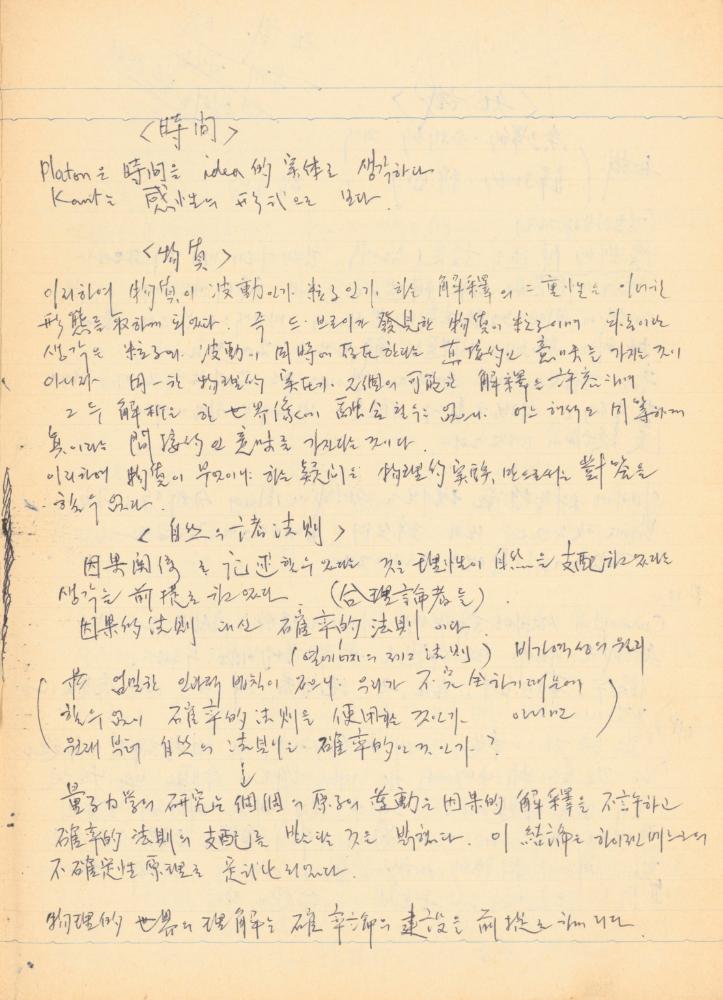 <時間>
Platon은 時間을 idea的 実体로 생각하다
Kant는 感性의 形式으로 보다.
<物質>
이리하여 物質이 波動인가. 粒子인가. 하는 解釋의 二重性은 이러한
形態를 取하게 되었다. 즉 드·브로이가 發見한 物質이 粒子이며 파동이라
생각은 粒子와 波動이 同時에 存在한다는 直接的인 意味를 가지는 것이
아니라 同一한 物理的 実在가 2個의 可能한 解釋을 許容하며
그 두 解析은 한 世界像에 融合할 수는 없으나. 어느 해석도 同等하게
真이라는 間接的인 意味를 가진다는 것이다.
이리하여 物質이 무엇이냐 하는 疑問은 物理的 実験만으로서는 對答을
할 수 없다.
<自然의 諸法則>
因果関係를 記述할 수 있다는 것은 理性이 自然을 支配하고 있다는
생각을 前提로 하고 있다 (合理論者들).
因果的 法則 대신 確率的 法則이다.
(열에너지의 제2法則) 비가역성의 원리
엄밀한 인과적 법칙이 있으나 우리가 不完全하기 때문에
할 수 없이 確率的 法則을 使用하는 것인가. 아니면
원래부터 自然의 法則은 確率的인 것인가?
量子力学의 研究는 個個의 原子의 運動은 因果的 解釋을 不許하고
確率的 法則의 支配를 받는다는 것을 밝혔다. 이 結論은 하이젠베르그의
不確定性 原理로 定式化되었다.
物理的 世界의 理解는 確率論의 建設을 前提로 하게 되다.